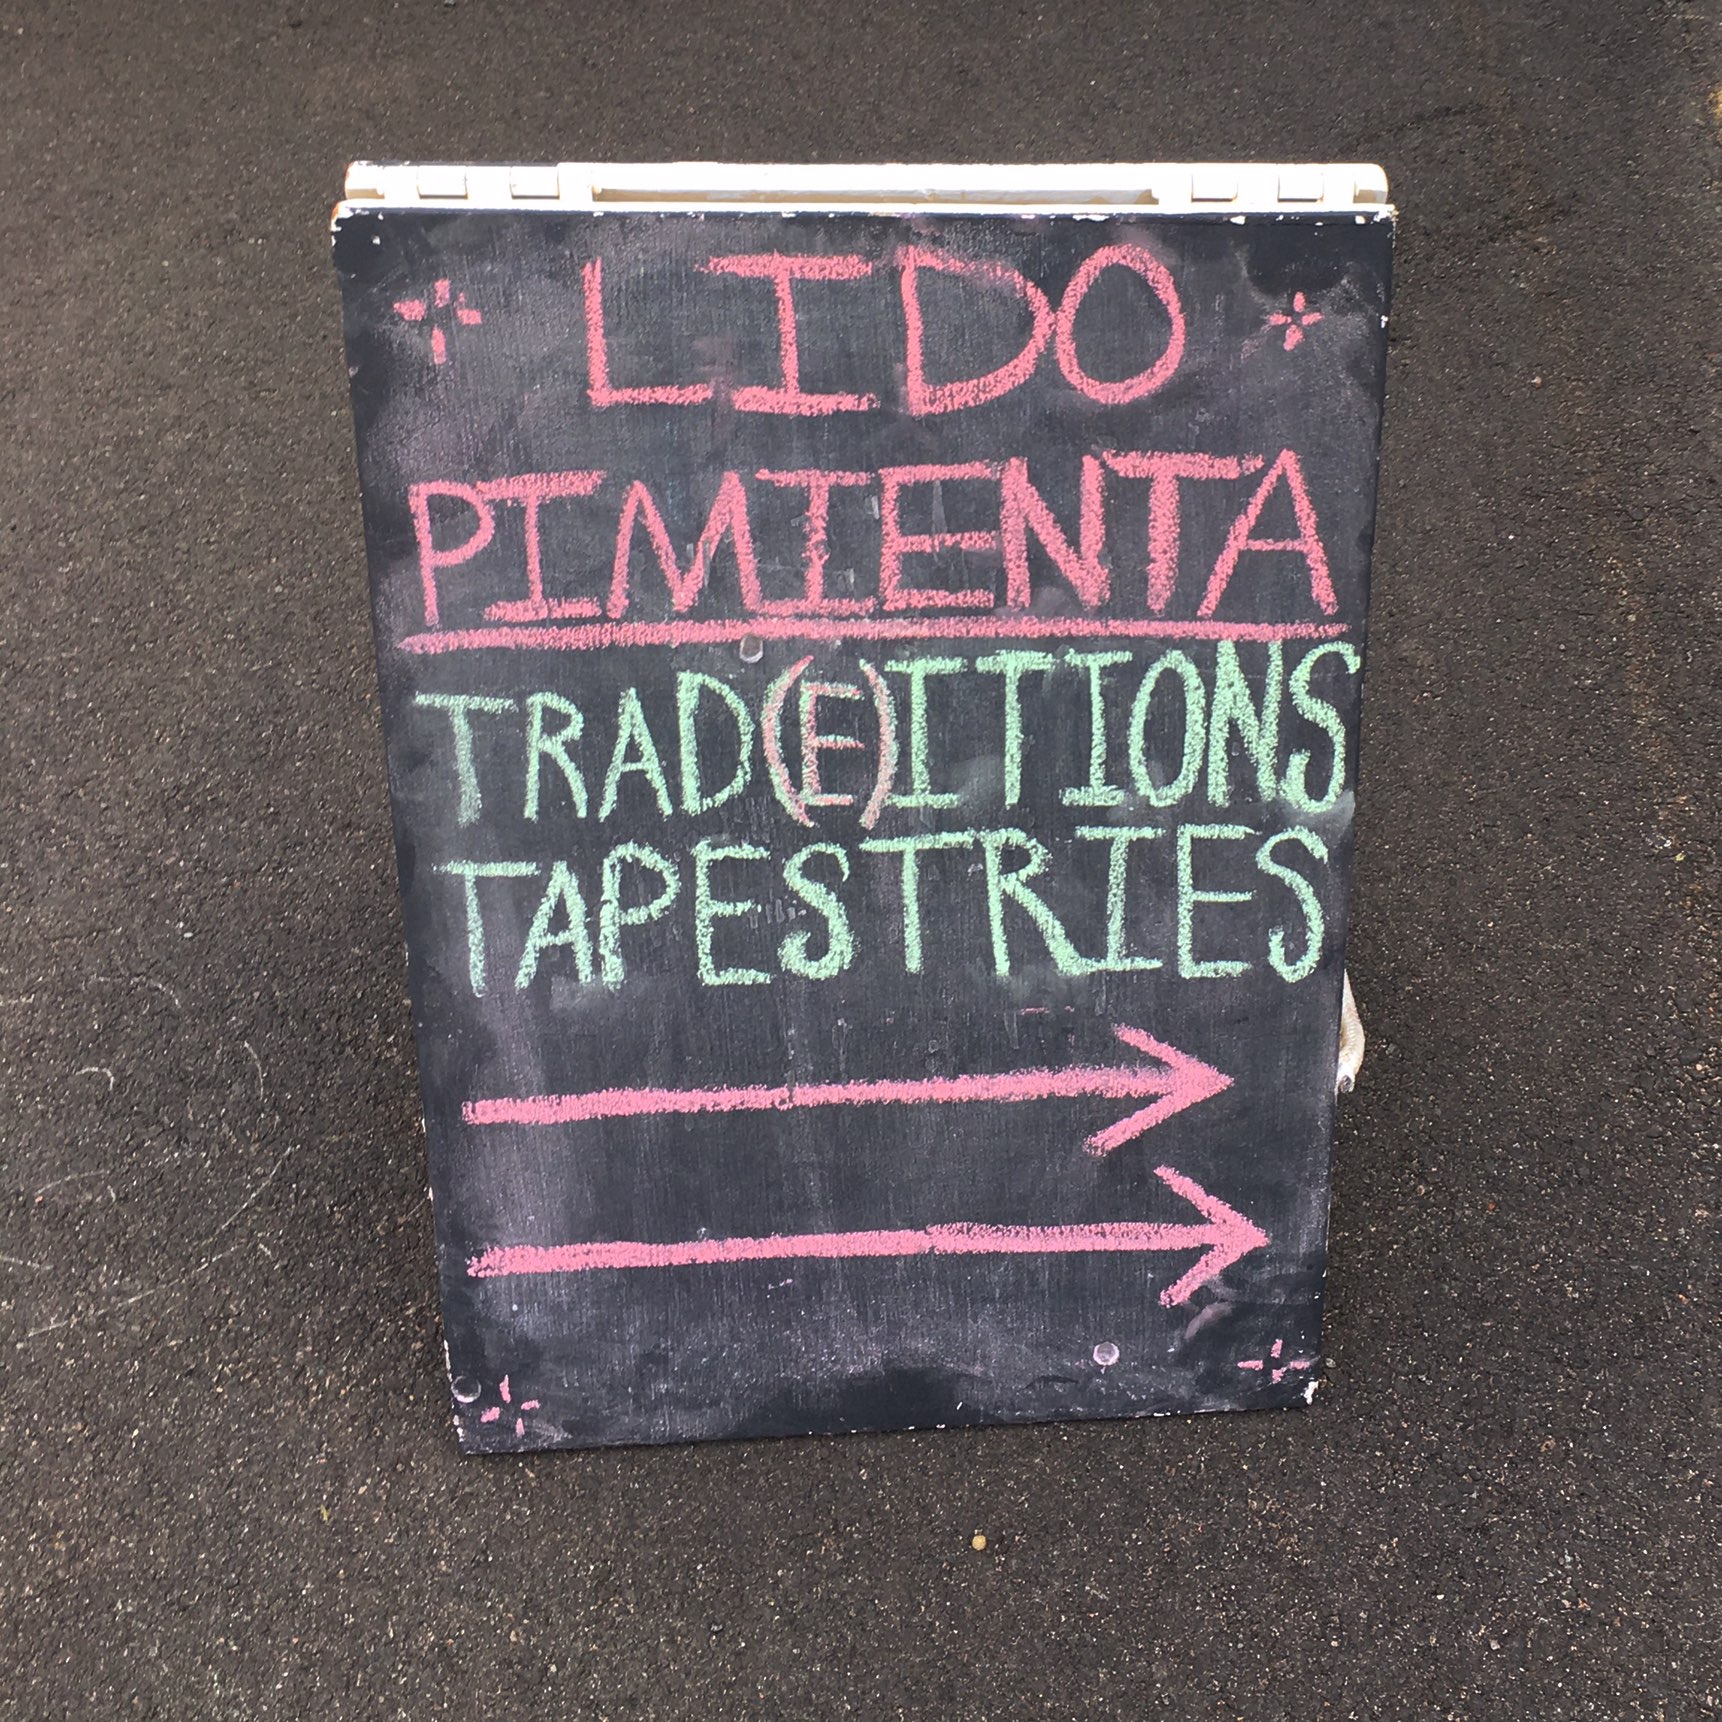 LIDO
PIMIENTA
TRAD(E)ITIONS
TAPESTRIES